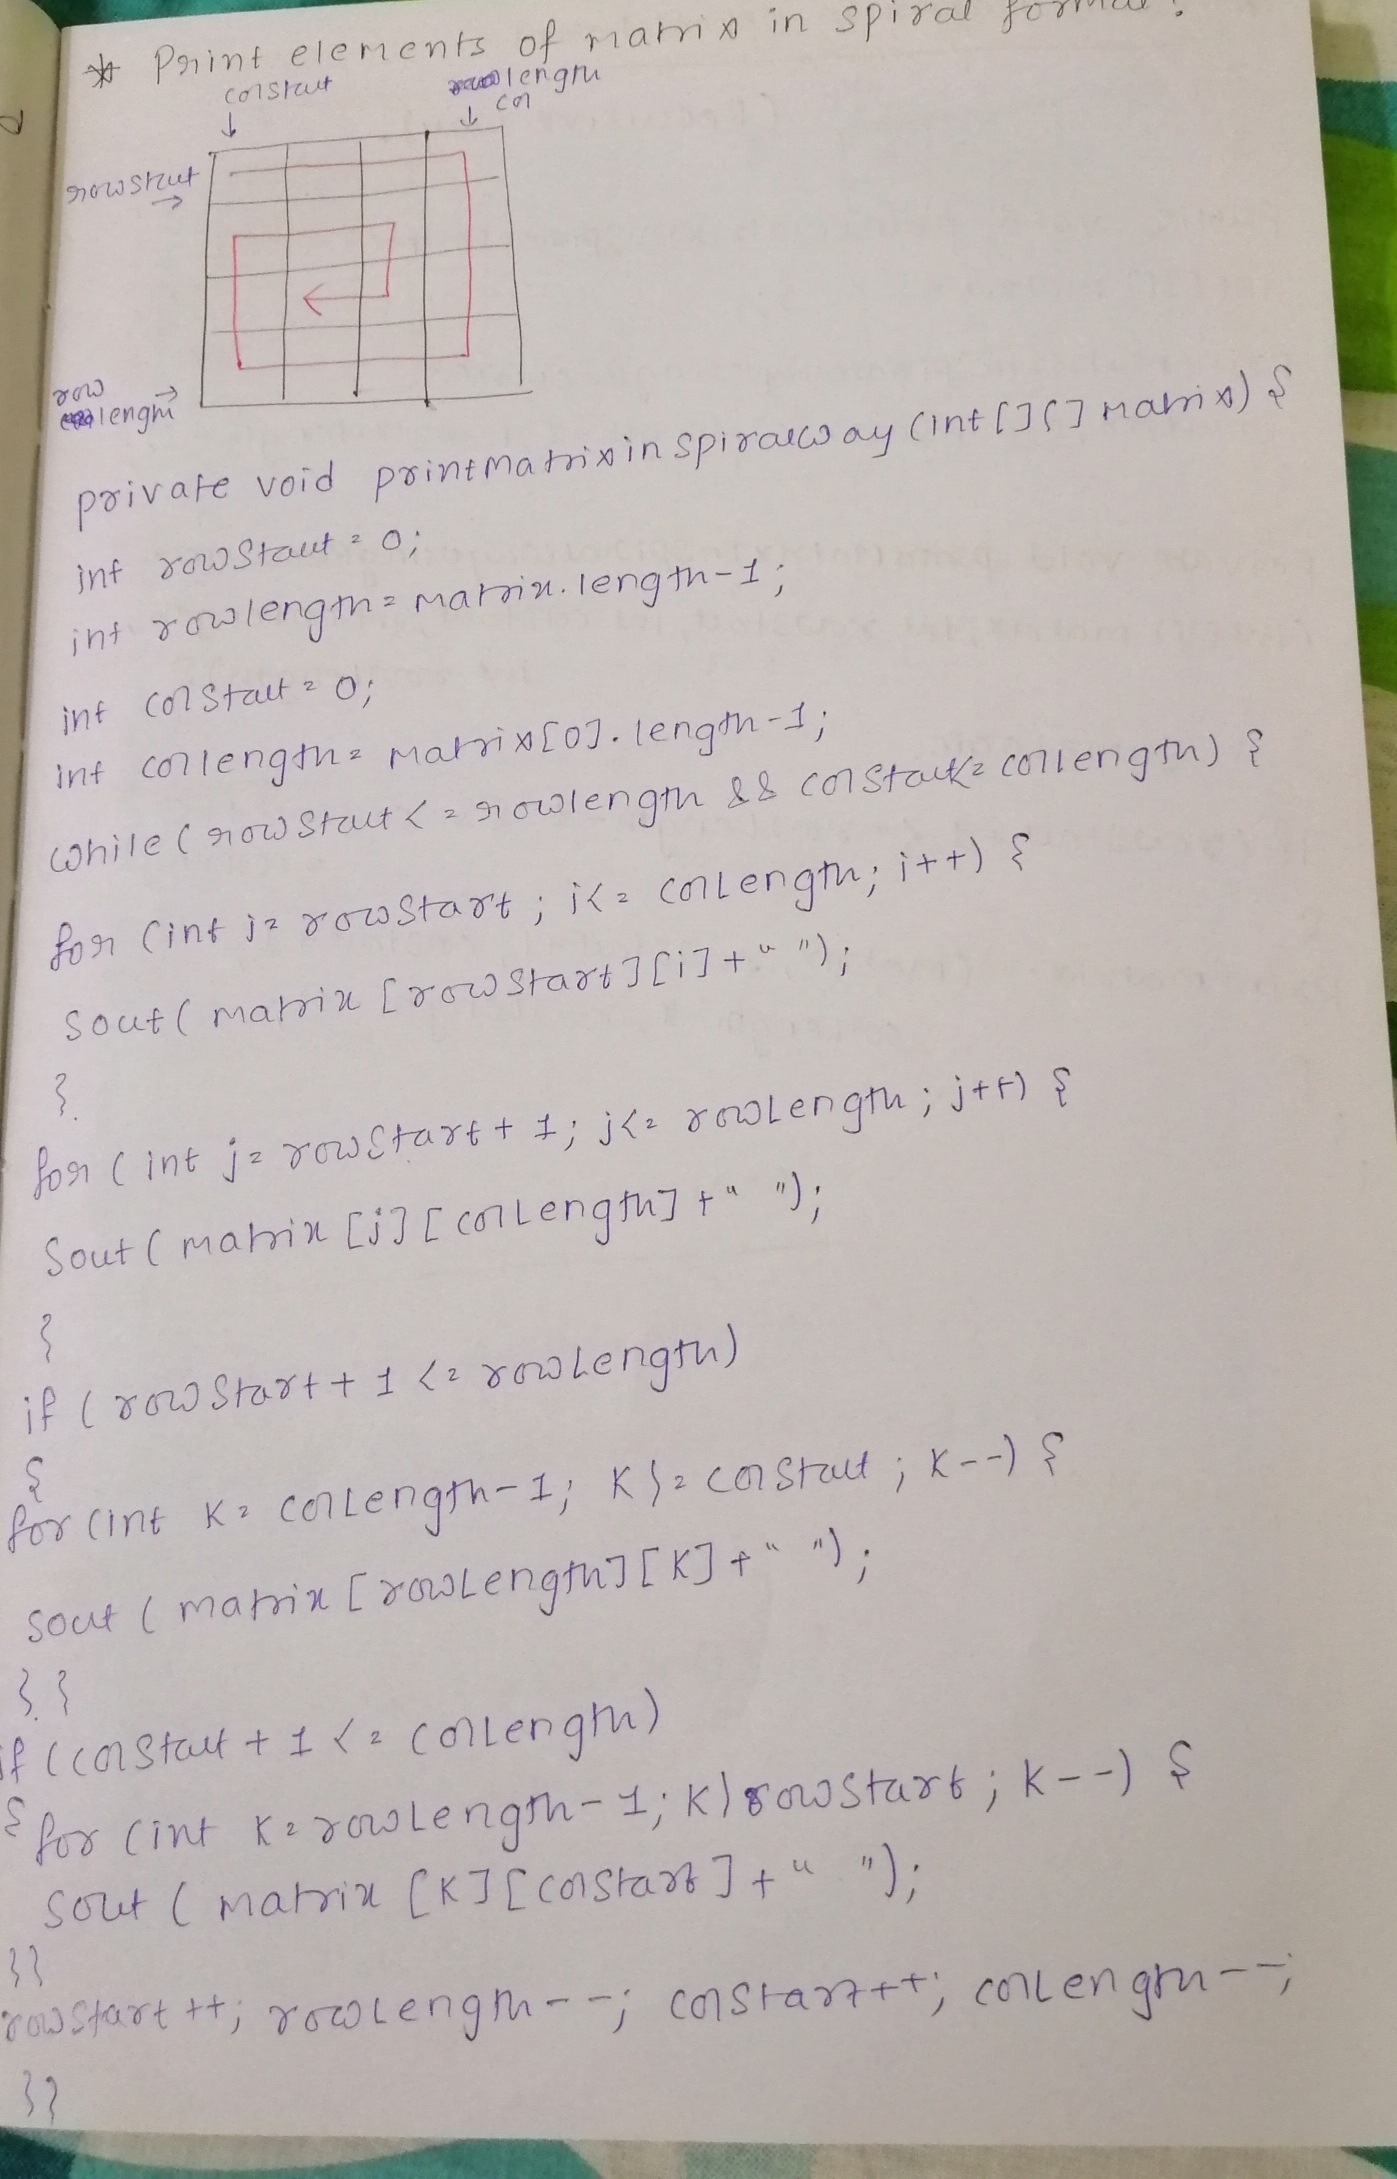 * Print elements of matrix in spiral format.
colstart
length
col
rowstart
row
length
private void printmatrixinspiralway (int[][] matrix) {
int rowStart = 0;
int rowlength = matrix.length-1;
int colStart = 0;
int collength = matrix[0].length-1;
while (rowStart <= rowlength && colStart<= collength) {
for (int i= rowStart ; i<= colLength; i++) {
Sout( matrix [rowStart][i]+" ");
}
for ( int j= rowStart + 1; j<= rowLength ; j++) {
Sout( matrix [j][colLength] +" ");
}
if ( rowStart + 1 <= rowLength)
{
for (int K= colLength-1; K>= colStart ; K--) {
Sout ( matrix [rowLength][K] +" ");
}}
if (colStart + 1 <= colLength)
{ for (int K=rowLength-1; K>rowStart ; K--) {
Sout ( matrix [K][colStart] +" ");
}}
rowStart ++; rowLength--; colStart++; colLength--;
}}